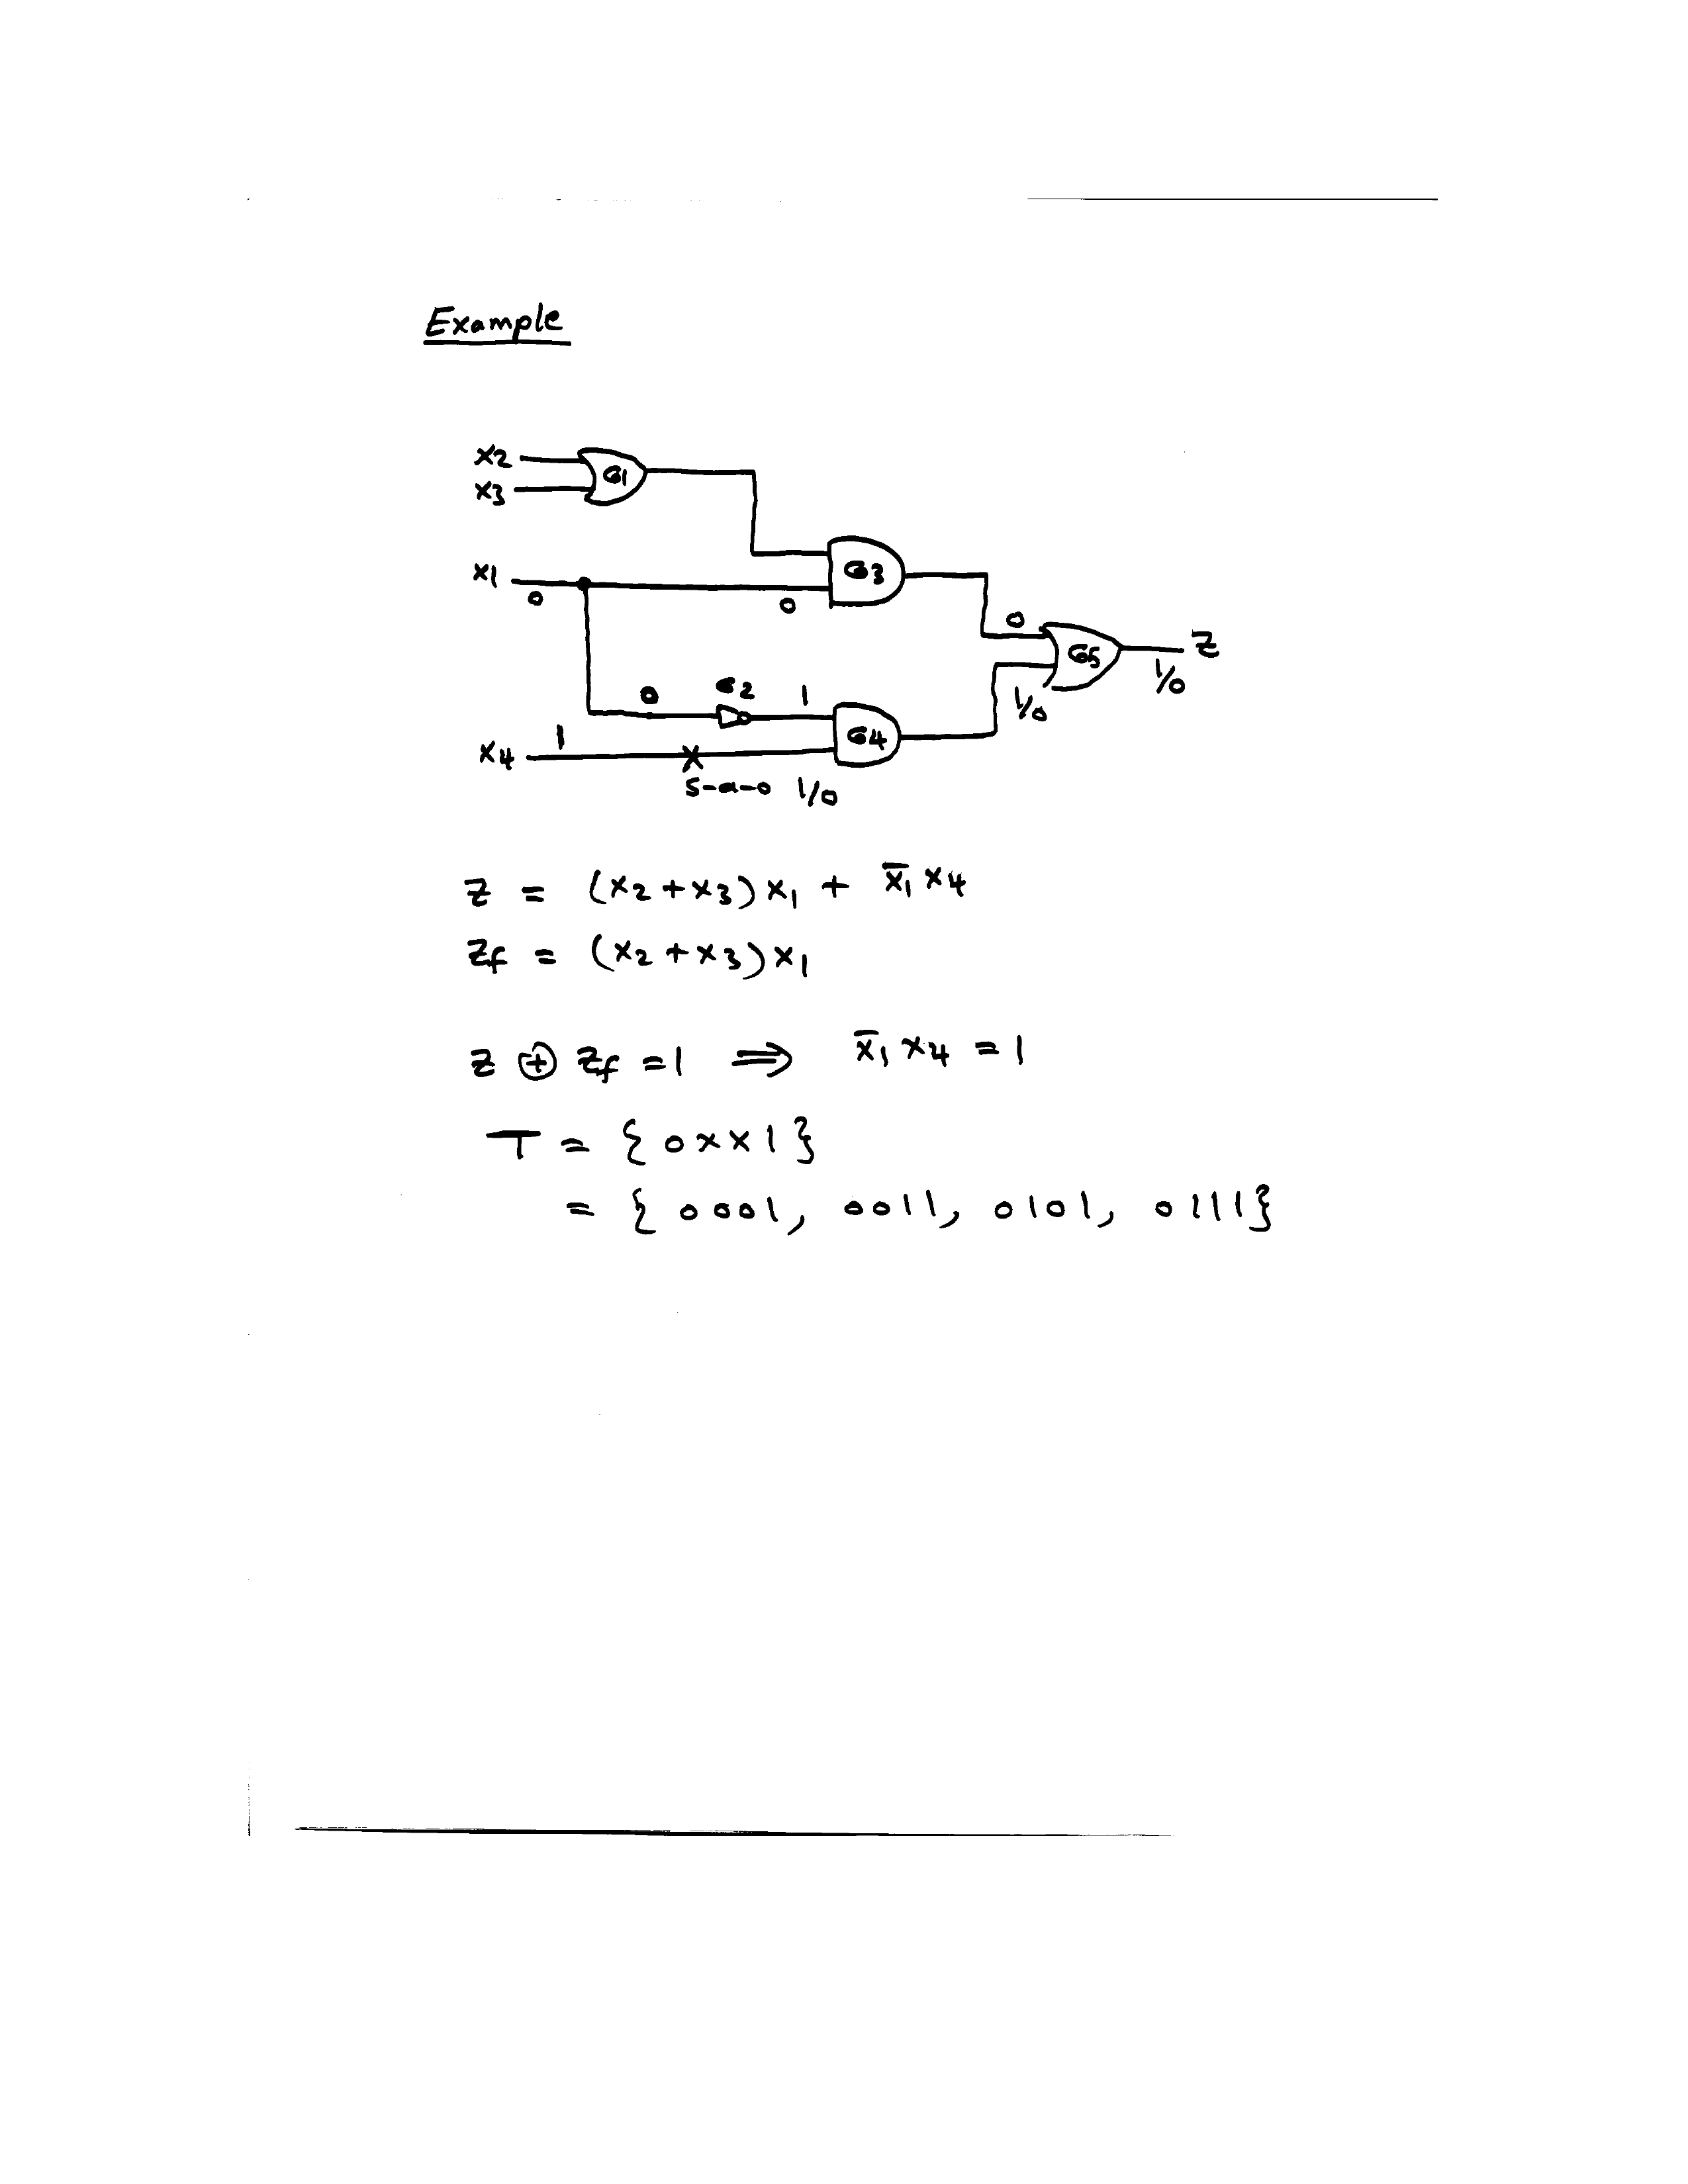 Example
x2
x3
G1
x1
0
0
G3
0
G5
z
1/0
0
G2
1
1/0
x4
1
G4
s-a-0 1/0
z = (x2 + x3) x1 + x̅1 x4
zf = (x2 + x3) x1
z ⊕ zf = 1 ⇒ x̅1 x4 = 1
T = { 0 x x 1 }
= { 0001, 0011, 0101, 0111 }